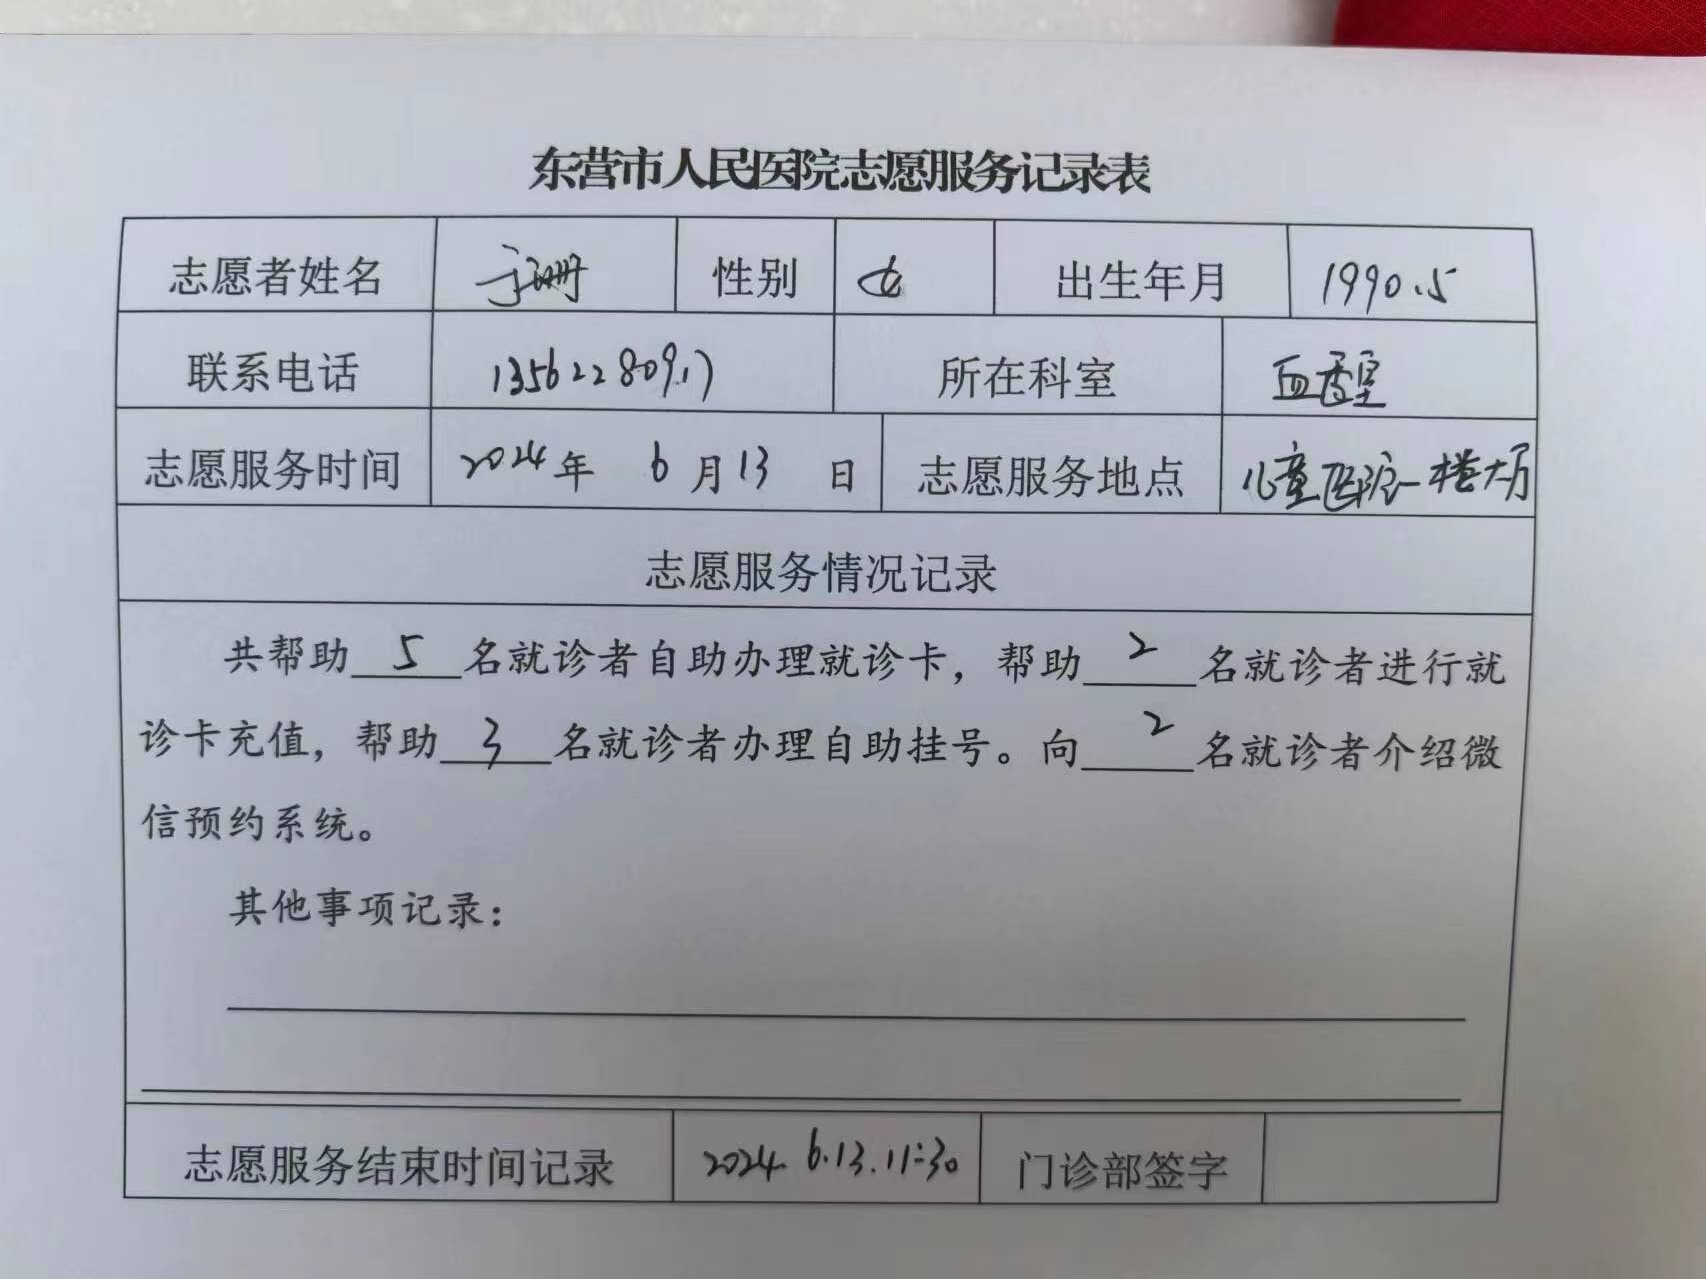 东营市人民医院志愿服务记录表
志愿者姓名 于珊 性别 女 出生年月 1990.5
联系电话 13562280917 所在科室
志愿服务时间 2024年 6月13 日 志愿服务地点 儿童医院一楼大厅
志愿服务情况记录
共帮助 5 名就诊者自助办理就诊卡，帮助 2 名就诊者进行就
诊卡充值，帮助 3 名就诊者办理自助挂号。向 2 名就诊者介绍微
信预约系统。
其他事项记录：
志愿服务结束时间记录 2024.6.13.11:30 门诊部签字